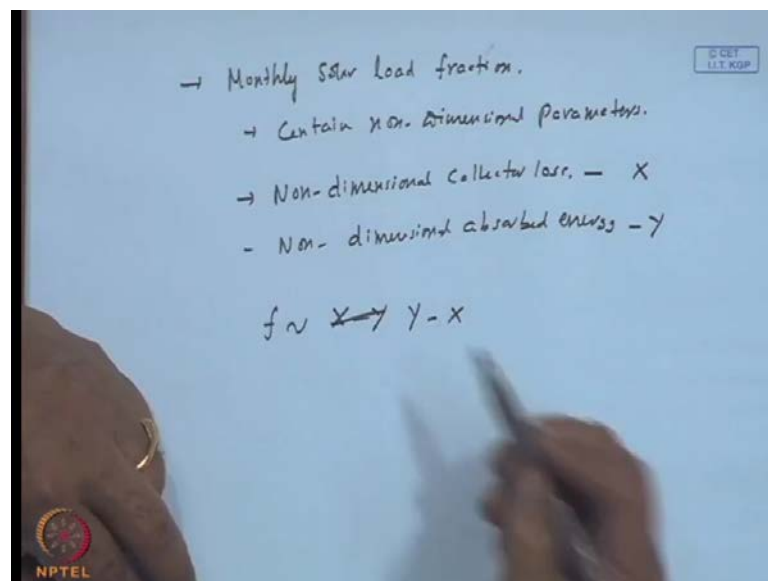 → Monthly Solar Load fraction.
© CET
I.I.T. KGP
→ Certain non-Dimensional Parameters.
→ Non-dimensional Collector loss. — X
- Non-dimensional absorbed energy - Y
f ~ X-Y Y-X
NPTEL